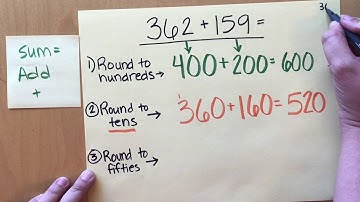 sum=
Add
+
362+159=
1) Round to
hundreds→ 400+200=600
② Round to
tens → 360+160=520
③ Round to
fifties →